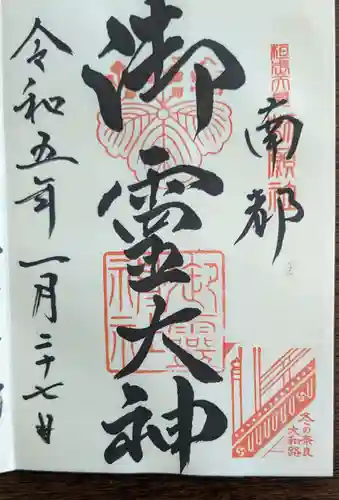 南都
御霊大神
令和五年一月二十七日
御霊神社
冬の奈良
大和路